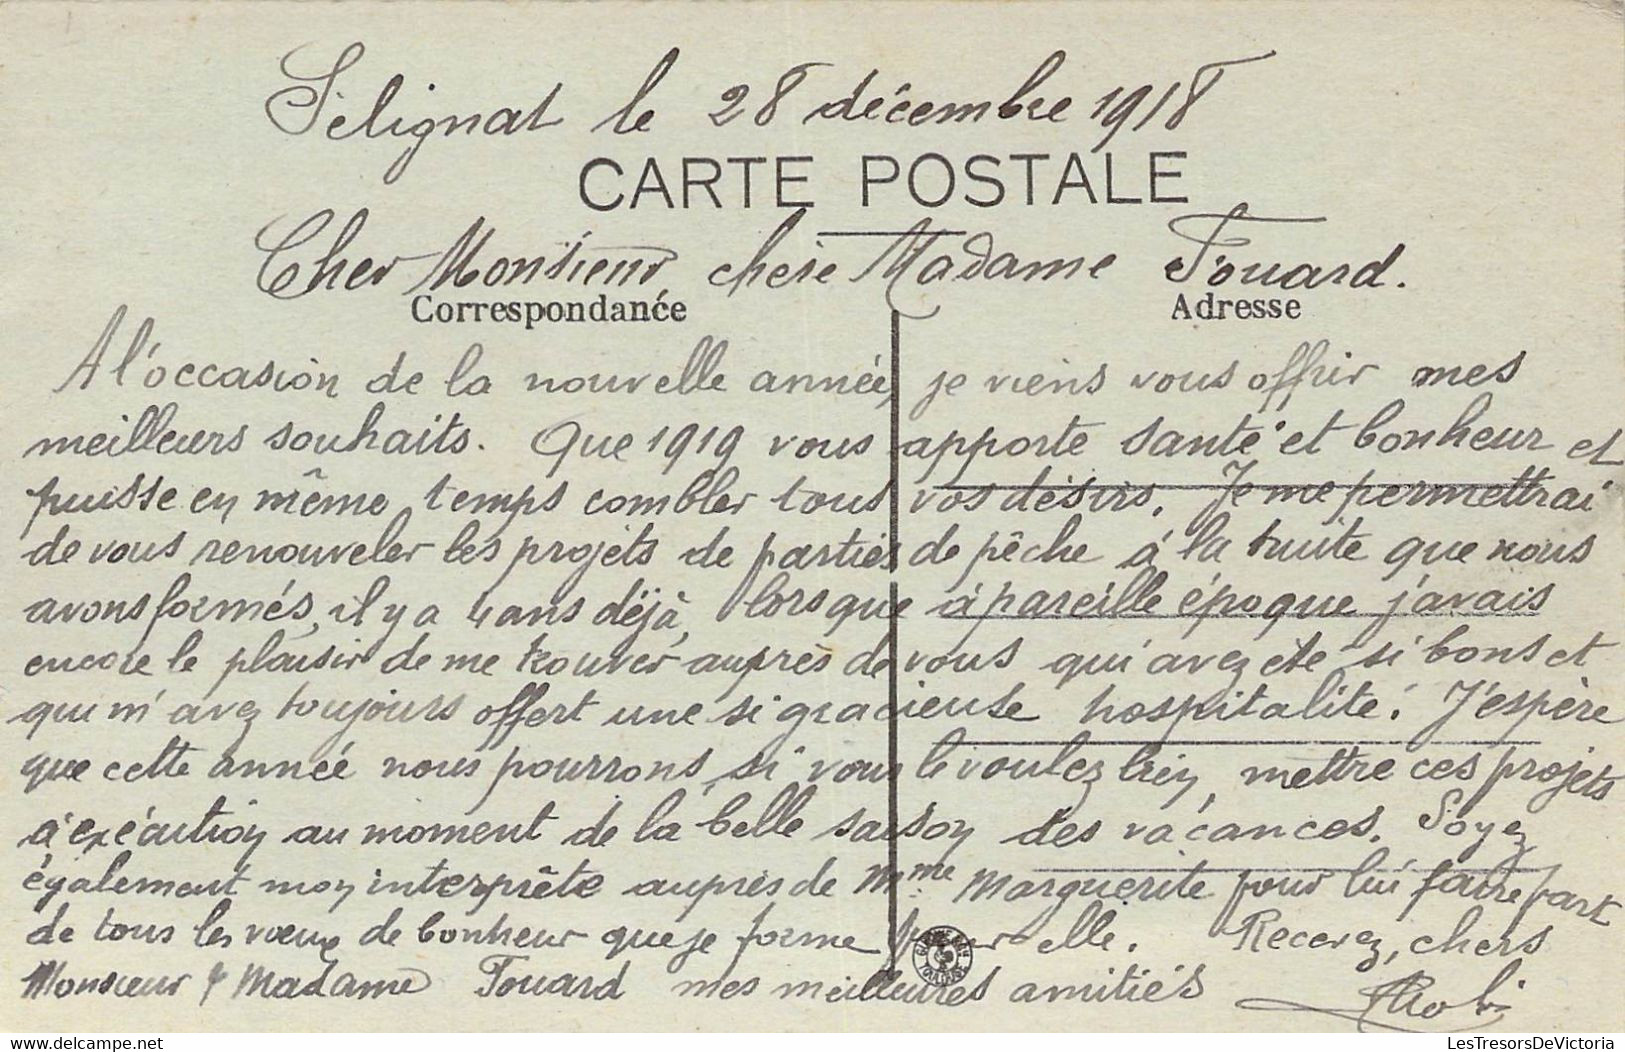 Sélignat le 28 décembre 1918
CARTE POSTALE
Cher Monsieur, chère Madame Fouard.
Correspondance Adresse
A l'occasion de la nouvelle année, je viens vous offrir mes
meilleurs souhaits. Que 1919 vous apporte santé et bonheur et
puisse en même temps combler tous vos désirs. Je me permettrai
de vous renouveler les projets de parties de pêche à la truite que nous
avons formés, il y a 4 ans déjà, lorsque à pareille époque j'avais
encore le plaisir de me trouver auprès de vous qui avez été si bons et
qui m'avez toujours offert une si gracieuse hospitalité. J'espère
que cette année nous pourrons, si vous le voulez bien, mettre ces projets
à exécution au moment de la belle saison des vacances. Soyez
également mon interprète auprès de Mme Marguerite pour lui faire part
de tous les vœux de bonheur que je forme pour elle. Recevez, chers
Monsieur & Madame Fouard mes meilleures amitiés
delcampe.net
LesTresorsDeVictoria